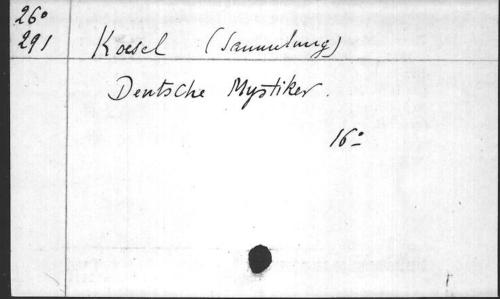 26º
291
Koesel (Sammlung)
Deutsche Mystiker.
16º